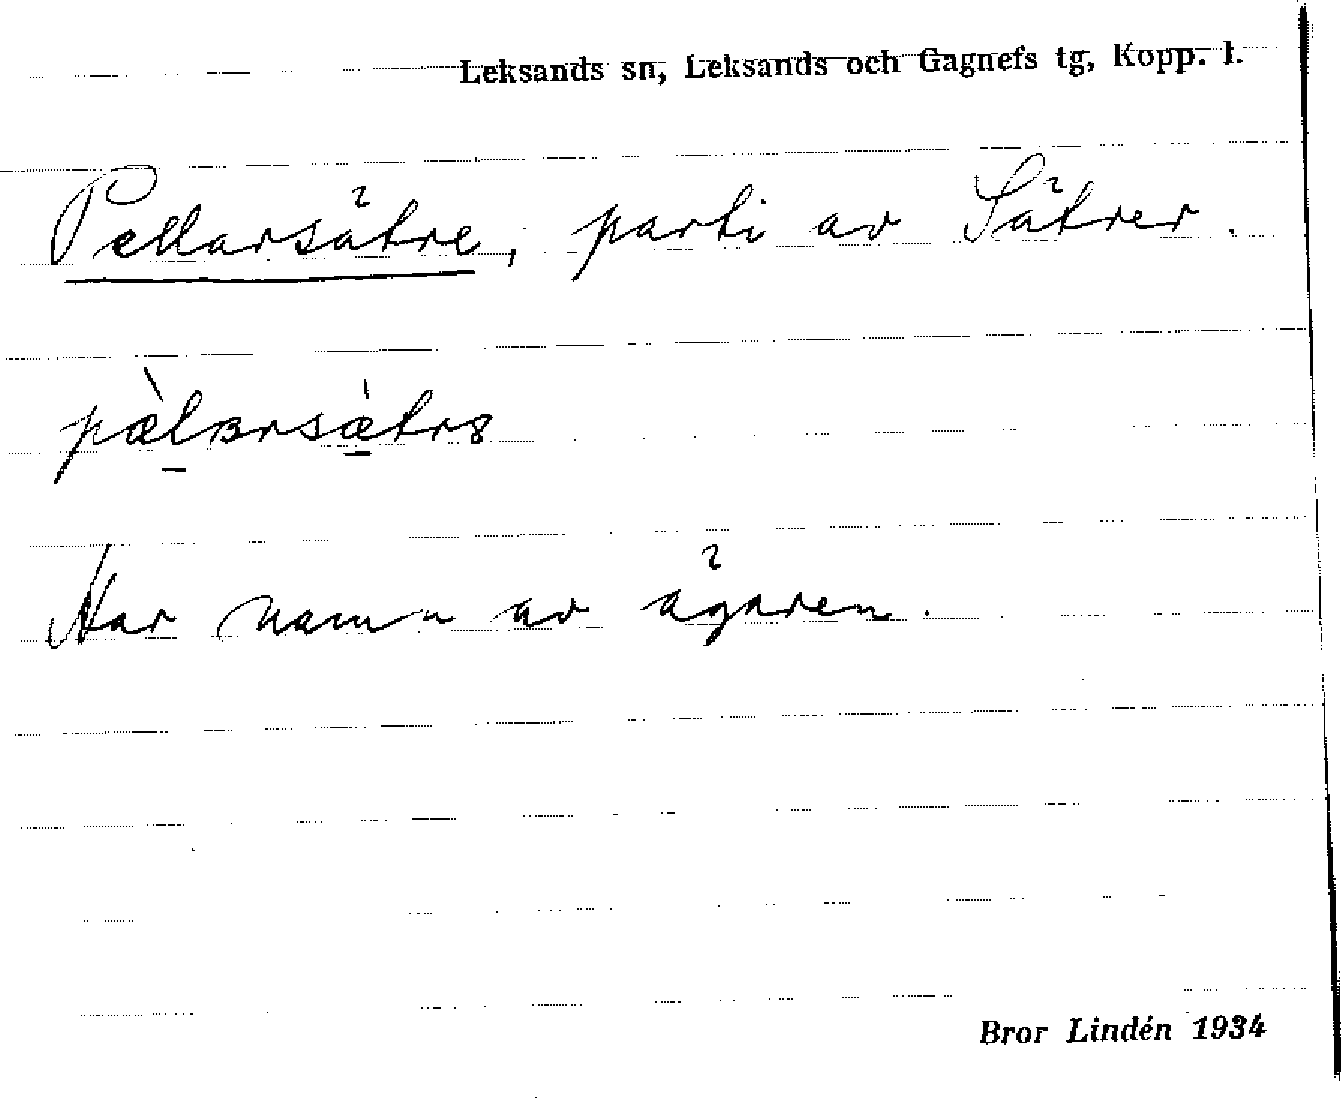 Leksands sn, Leksands och Gagnefs tg, Kopp. l.
Pellarsätre, parti av Sätrer.
pæ̀larsæ̀trə
Har namn av ägaren.
Bror Lindén 1934